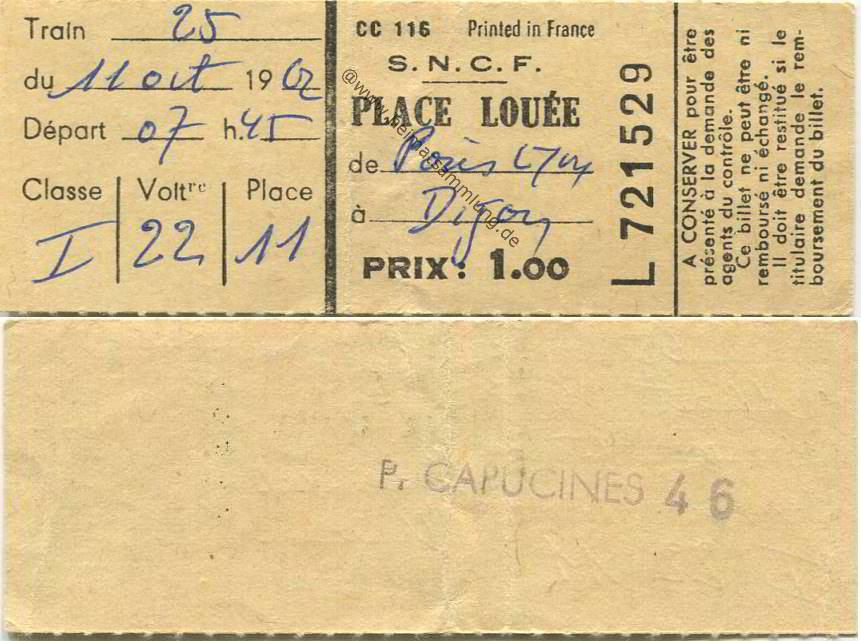 Train 25
du 11 oct 1962
Départ 07 h. 45
Classe Voitre Place
I 22 11
CC 116 Printed in France
S.N.C.F.
PLACE LOUÉE
de Paris Lyon
à Dijon
PRIX : 1.00
L 721529
A CONSERVER pour être
présenté à la demande des
agents du contrôle.
Ce billet ne peut être ni
remboursé ni échangé.
Il doit être restitué si le
titulaire demande le rem-
boursement du billet.
@www.heimatsammlung.de
P. CAPUCINES 46